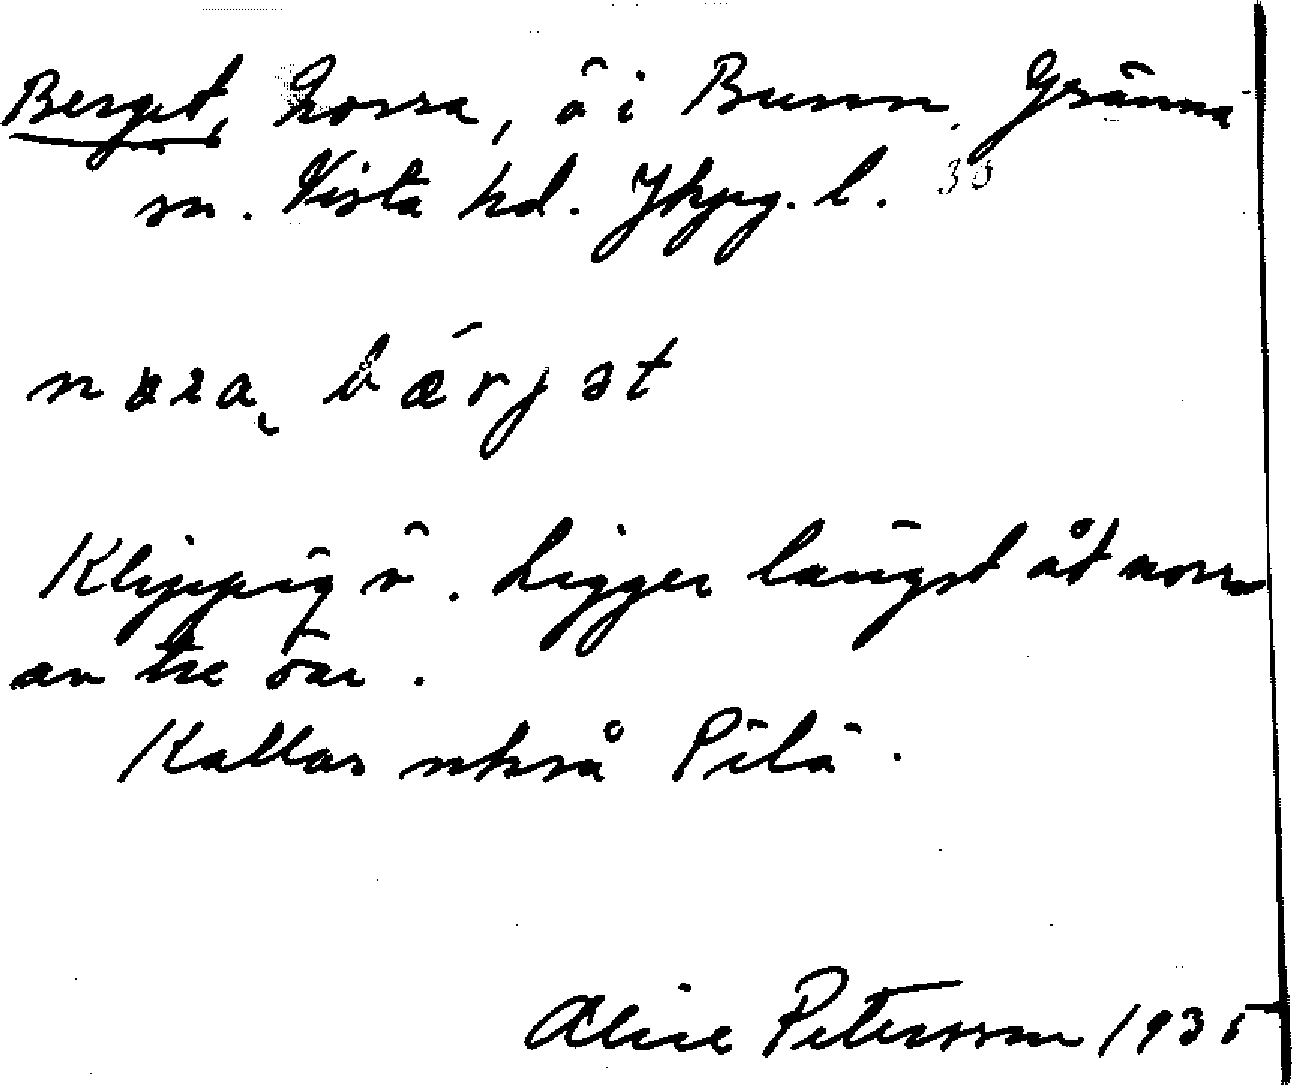 Berget, Norra, ö i Bunn, Gränna
sn. Vista hd. Jkpg. l. 30
bärjət
Klippig ö. Ligger längst åt norr
av tre öar.
Kallas också Pilö.
Alice Petersson 1935